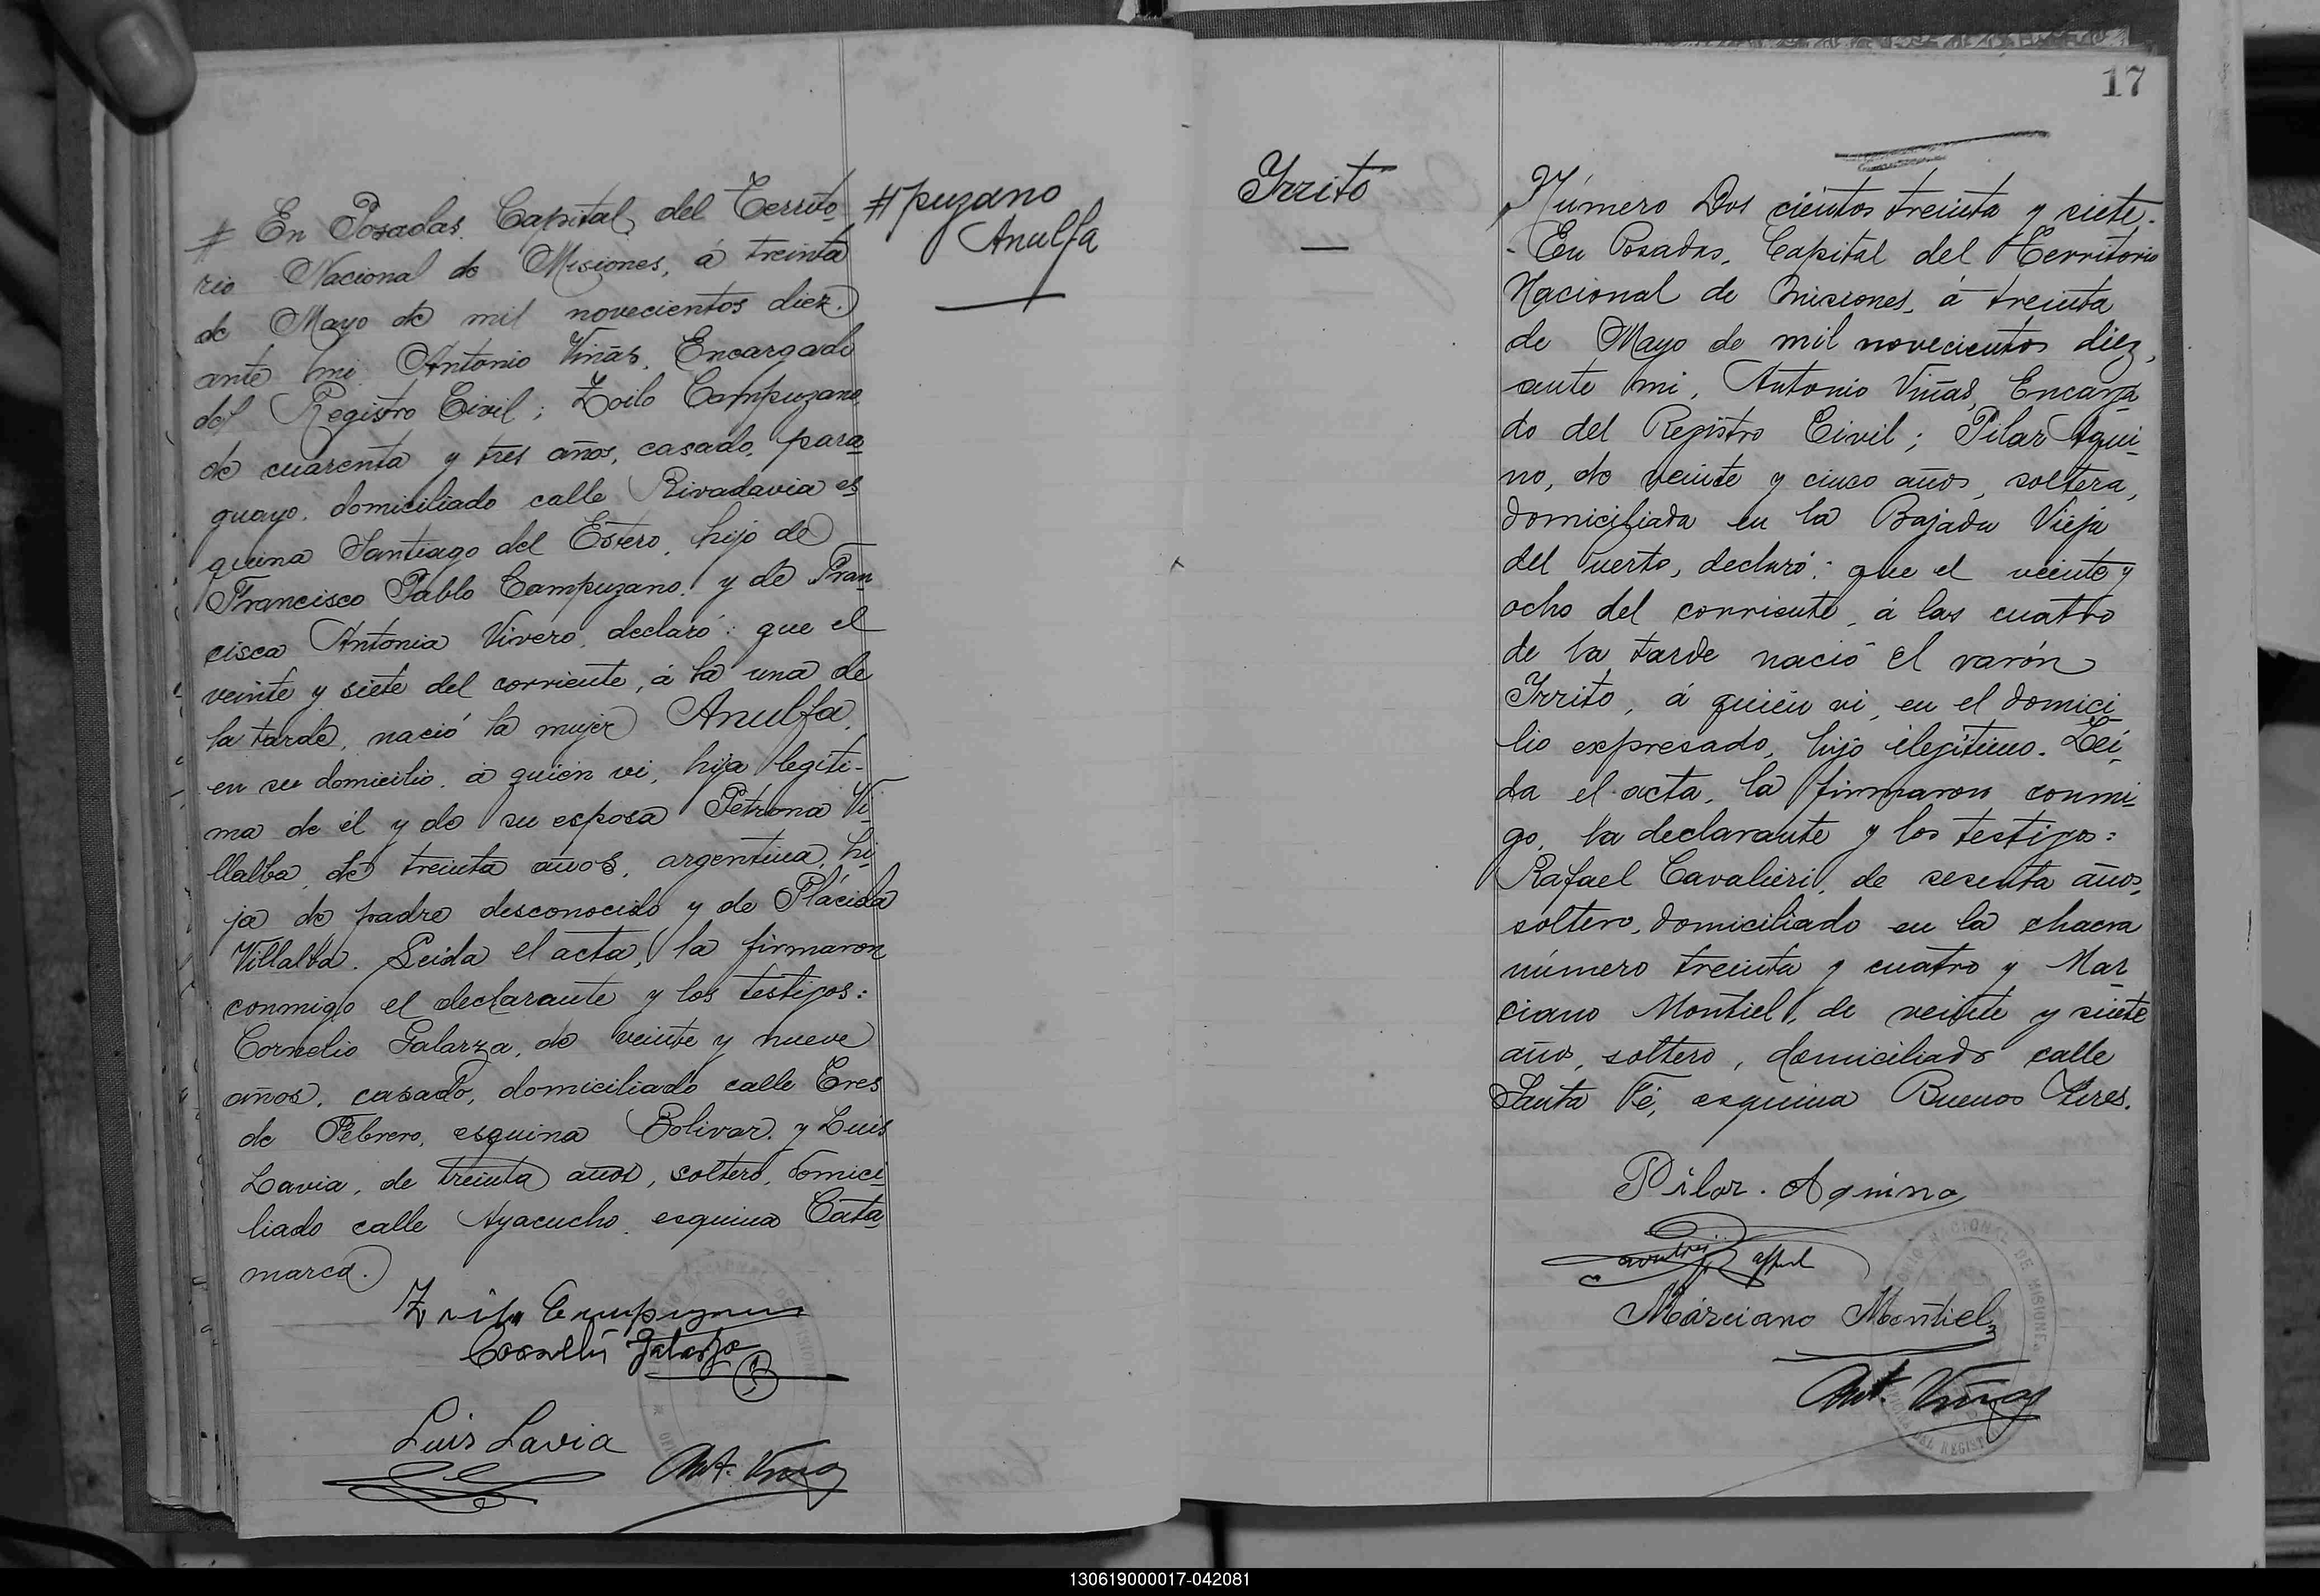 # En Posadas, Capital, del Territo-
rio Nacional de Misiones, á treinta
de Mayo de mil novecientos diez,
ante mi Antonio Viñas, Encargado
del Registro Civil; Zoilo Campuzano
de cuarenta y tres años, casado, para-
guayo, domiciliado calle Rivadavia es-
quina Santiago del Estero, hijo de
Francisco Pablo Campuzano, y de Fran-
cisca Antonia Vivero, declaró: que el
veinte y siete del corriente, á la una de
la tarde, nació la mujer Anulfa,
en su domicilio, á quién vi, hija legíti-
ma de él y de su esposa Petrona Vi-
llalba, de treinta años, argentina, hi-
ja de padre desconocido y de Plácida
Villalba. Leida el acta, la firmaron
conmigo el declarante y los testigos:
Cornelio Galarza, de veinte y nueve
años, casado, domiciliado calle Tres
de Febrero, esquina Bolivar, y Luis
Lavia, de treinta años, soltero, domici-
liado calle Ayacucho, esquina Cata-
marca.
Zoilo Campuzano
Cornelio Galarza
Luis Lavia
Ant. Viñas
# puzano
Anulfa
Irrito
17
Número Dos cientos treinta y siete.
- En Posadas, Capital del Territorio
Nacional de Misiones, á treinta
de Mayo de mil novecientos diez,
ante mi, Antonio Viñas, Encarga-
do del Registro Civil; Pilar Aqui-
no, de veinte y cinco años, soltera,
domiciliada en la Bajada Vieja
del Puerto, declaró: que el veinte y
ocho del corriente, á las cuatro
de la tarde nació el varón
Irrito, á quién vi, en el domici-
lio expresado, hijo ilegítimo. Leí-
da el acta, la firmaron conmi-
go, la declarante y los testigos:
Rafael Cavalieri, de sesenta años,
soltero, domiciliado en la chacra
número treinta y cuatro y Mar-
ciano Montiel, de veinte y siete
años, soltero, domiciliado calle
Santa Fé, esquina Buenos Aires.
Pilar. Aquino
Marciano Montiel
Ant. Viñas
130619000017-042081